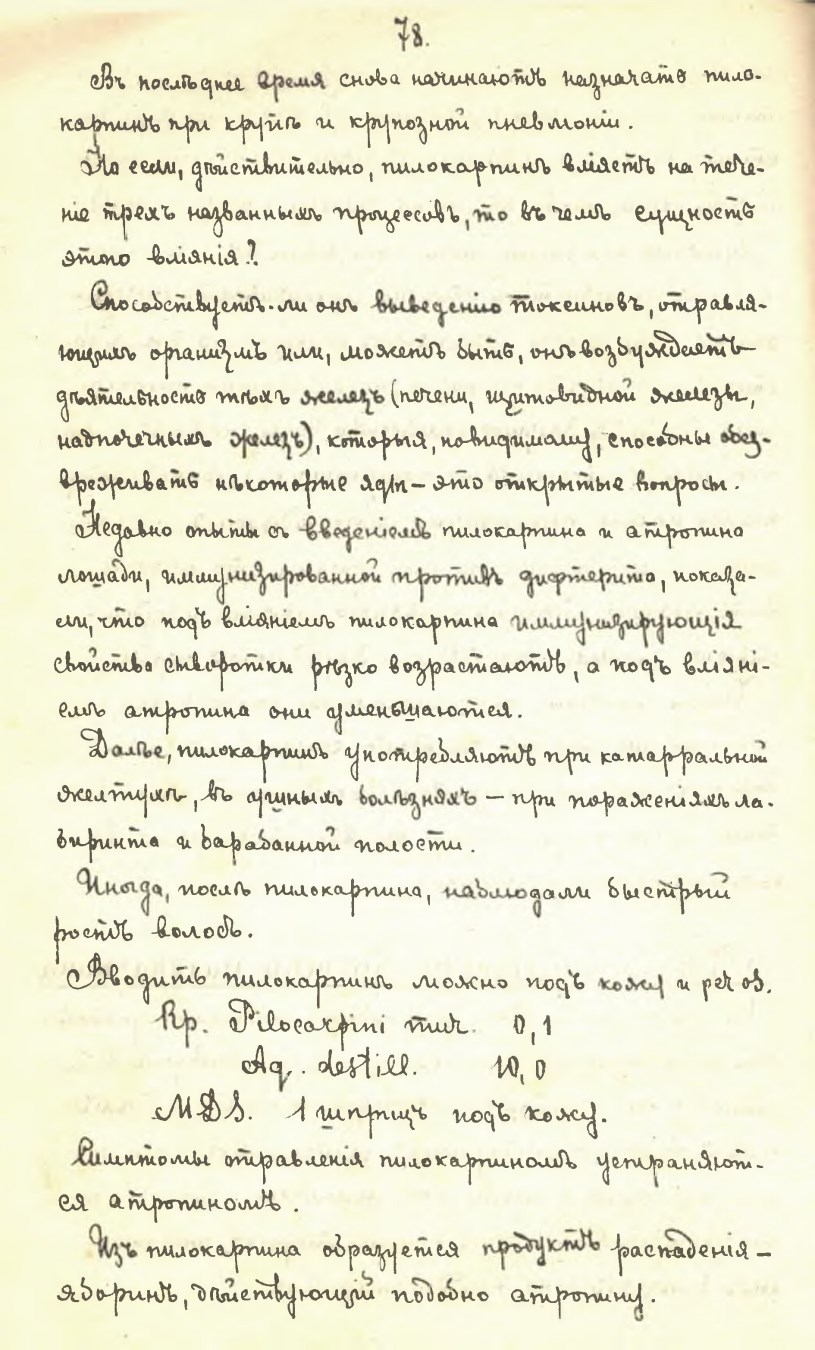 78.
Въ послѣднее время снова начинаютъ назначать пило-
карпинъ при крупѣ и крупозной пневмоніи.
Но если, дѣйствительно, пилокарпинъ вліяетъ на тече-
ніе трехъ названныхъ процессовъ, то въ чемъ сущность
этого вліянія?
Способствуетъ-ли онъ выведенію токсиновъ, отравля-
ющихъ организмъ или, можетъ быть, онъ возбуждаетъ
дѣятельность тѣхъ железъ (печени, щитовидной железы,
надпочечныхъ железъ), которыя, повидимому, способны обез-
вреживать нѣкоторые яды — это открытые вопросы.
Недавно опыты съ введеніемъ пилокарпина и атропина
лошади, иммунизированной противъ дифтерита, показа-
ли, что подъ вліяніемъ пилокарпина иммунизирующія
свойства сыворотки рѣзко возрастаютъ, а подъ вліяні-
емъ атропина они уменьшаются.
Далѣе, пилокарпинъ употребляютъ при катарральной
желтухѣ, въ ушныхъ болѣзняхъ — при пораженіяхъ ла-
биринта и барабанной полости.
Иногда, послѣ пилокарпина, наблюдали быстрый
ростъ волосъ.
Вводить пилокарпинъ можно подъ кожу и per os.
Rp. Pilocarpini mur. 0,1
Aq. destill. 10,0
MDS. 1 шприцъ подъ кожу.
Симптомы отравленія пилокарпиномъ устраняют-
ся атропиномъ.
Изъ пилокарпина образуется продуктъ распаденія —
яборинъ, дѣйствующій подобно атропину.